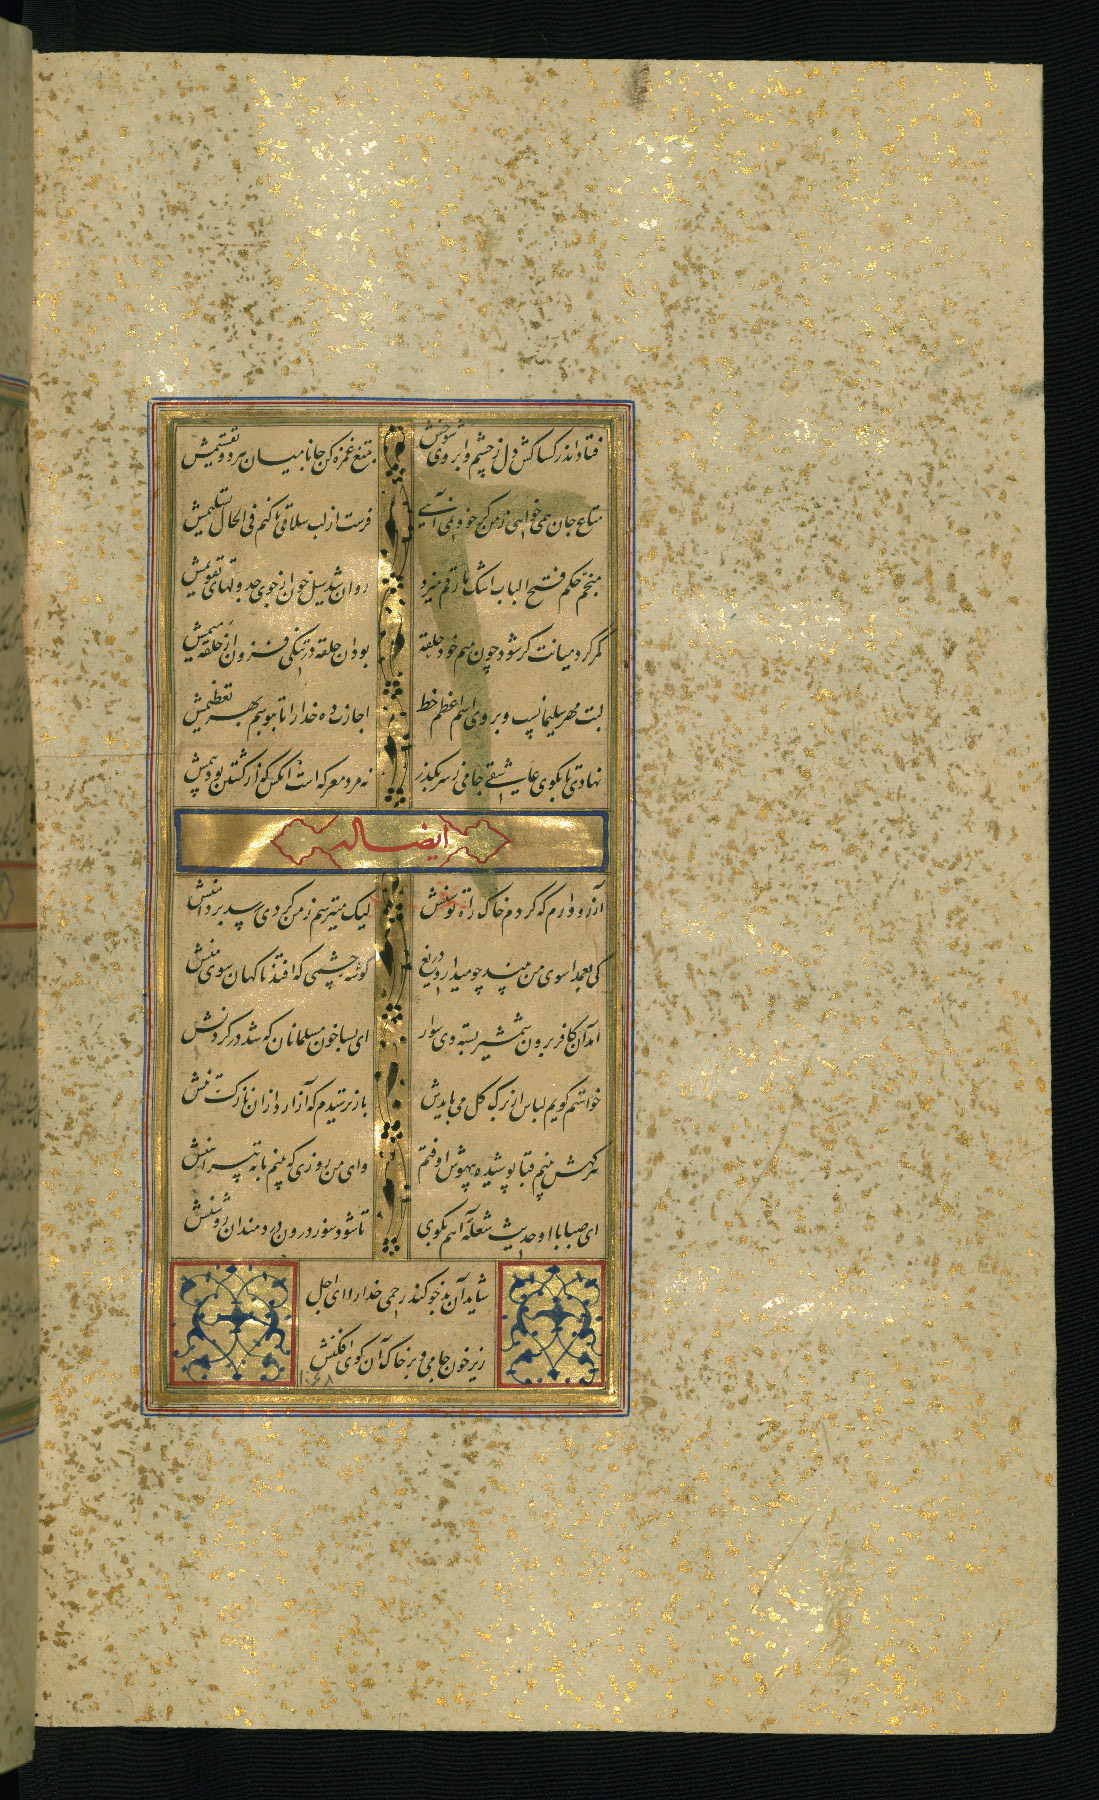 فتاد اندر کشاکش دل ز چشم و ابروی شوخش
بتیغ غمزه کن جانا میان هر دو تقسیمش
متاع جان همی خواهی ز من گر خود برون آیی
فرست از لب سلامی تا کنم فی الحال تسلیمش
منجم حکم فتح الباب اشک ما رقم میزد
روان شد سیل خون از جوی جدولهای تقویمش
کمر گرد میانت گر شود چون میم خود حلقه
بود آن حلقه در تنگی فزون از حلقه میمش
لبت مهر سلیمانیست و بر وی اسم اعظم خط
اجازت ده خدا را تا ببوسم بهر تعظیمش
نهادی پا بکوی عاشقی جامی ز سر بگذر
نه مرد معرکه است آنکس که از کشتن بود بیمش
ایضا له
آرزو دارم که گردم خاک راه توسنش
لیک میترسم ز من گردی رسد بر دامنش
کی بعمدا سوی من بیند چو میدارد دریغ
گوشه چشمی که افتد ناگهان سوی منش
آمد آن کافر برون شمشیر بسته دی سوار
ای بسا خون مسلمانان که شد در گردنش
خواستم گویم لباس از برگ گل می بایدش
باز ترسیدم که آزارد از آن نازک تنش
گرکهش بینم قبا پوشیده بیهوش اوفتم
وای من روزی که بینم با ته پیراهنش
ای صبا با او حدیث شعله آهم بگوی
تا شود سوز درون دردمندان روشنش
شاید آن بدخو کند رحمی خدا را ای اجل
زیر خون جامی و بر خاک آن کوی افکنش